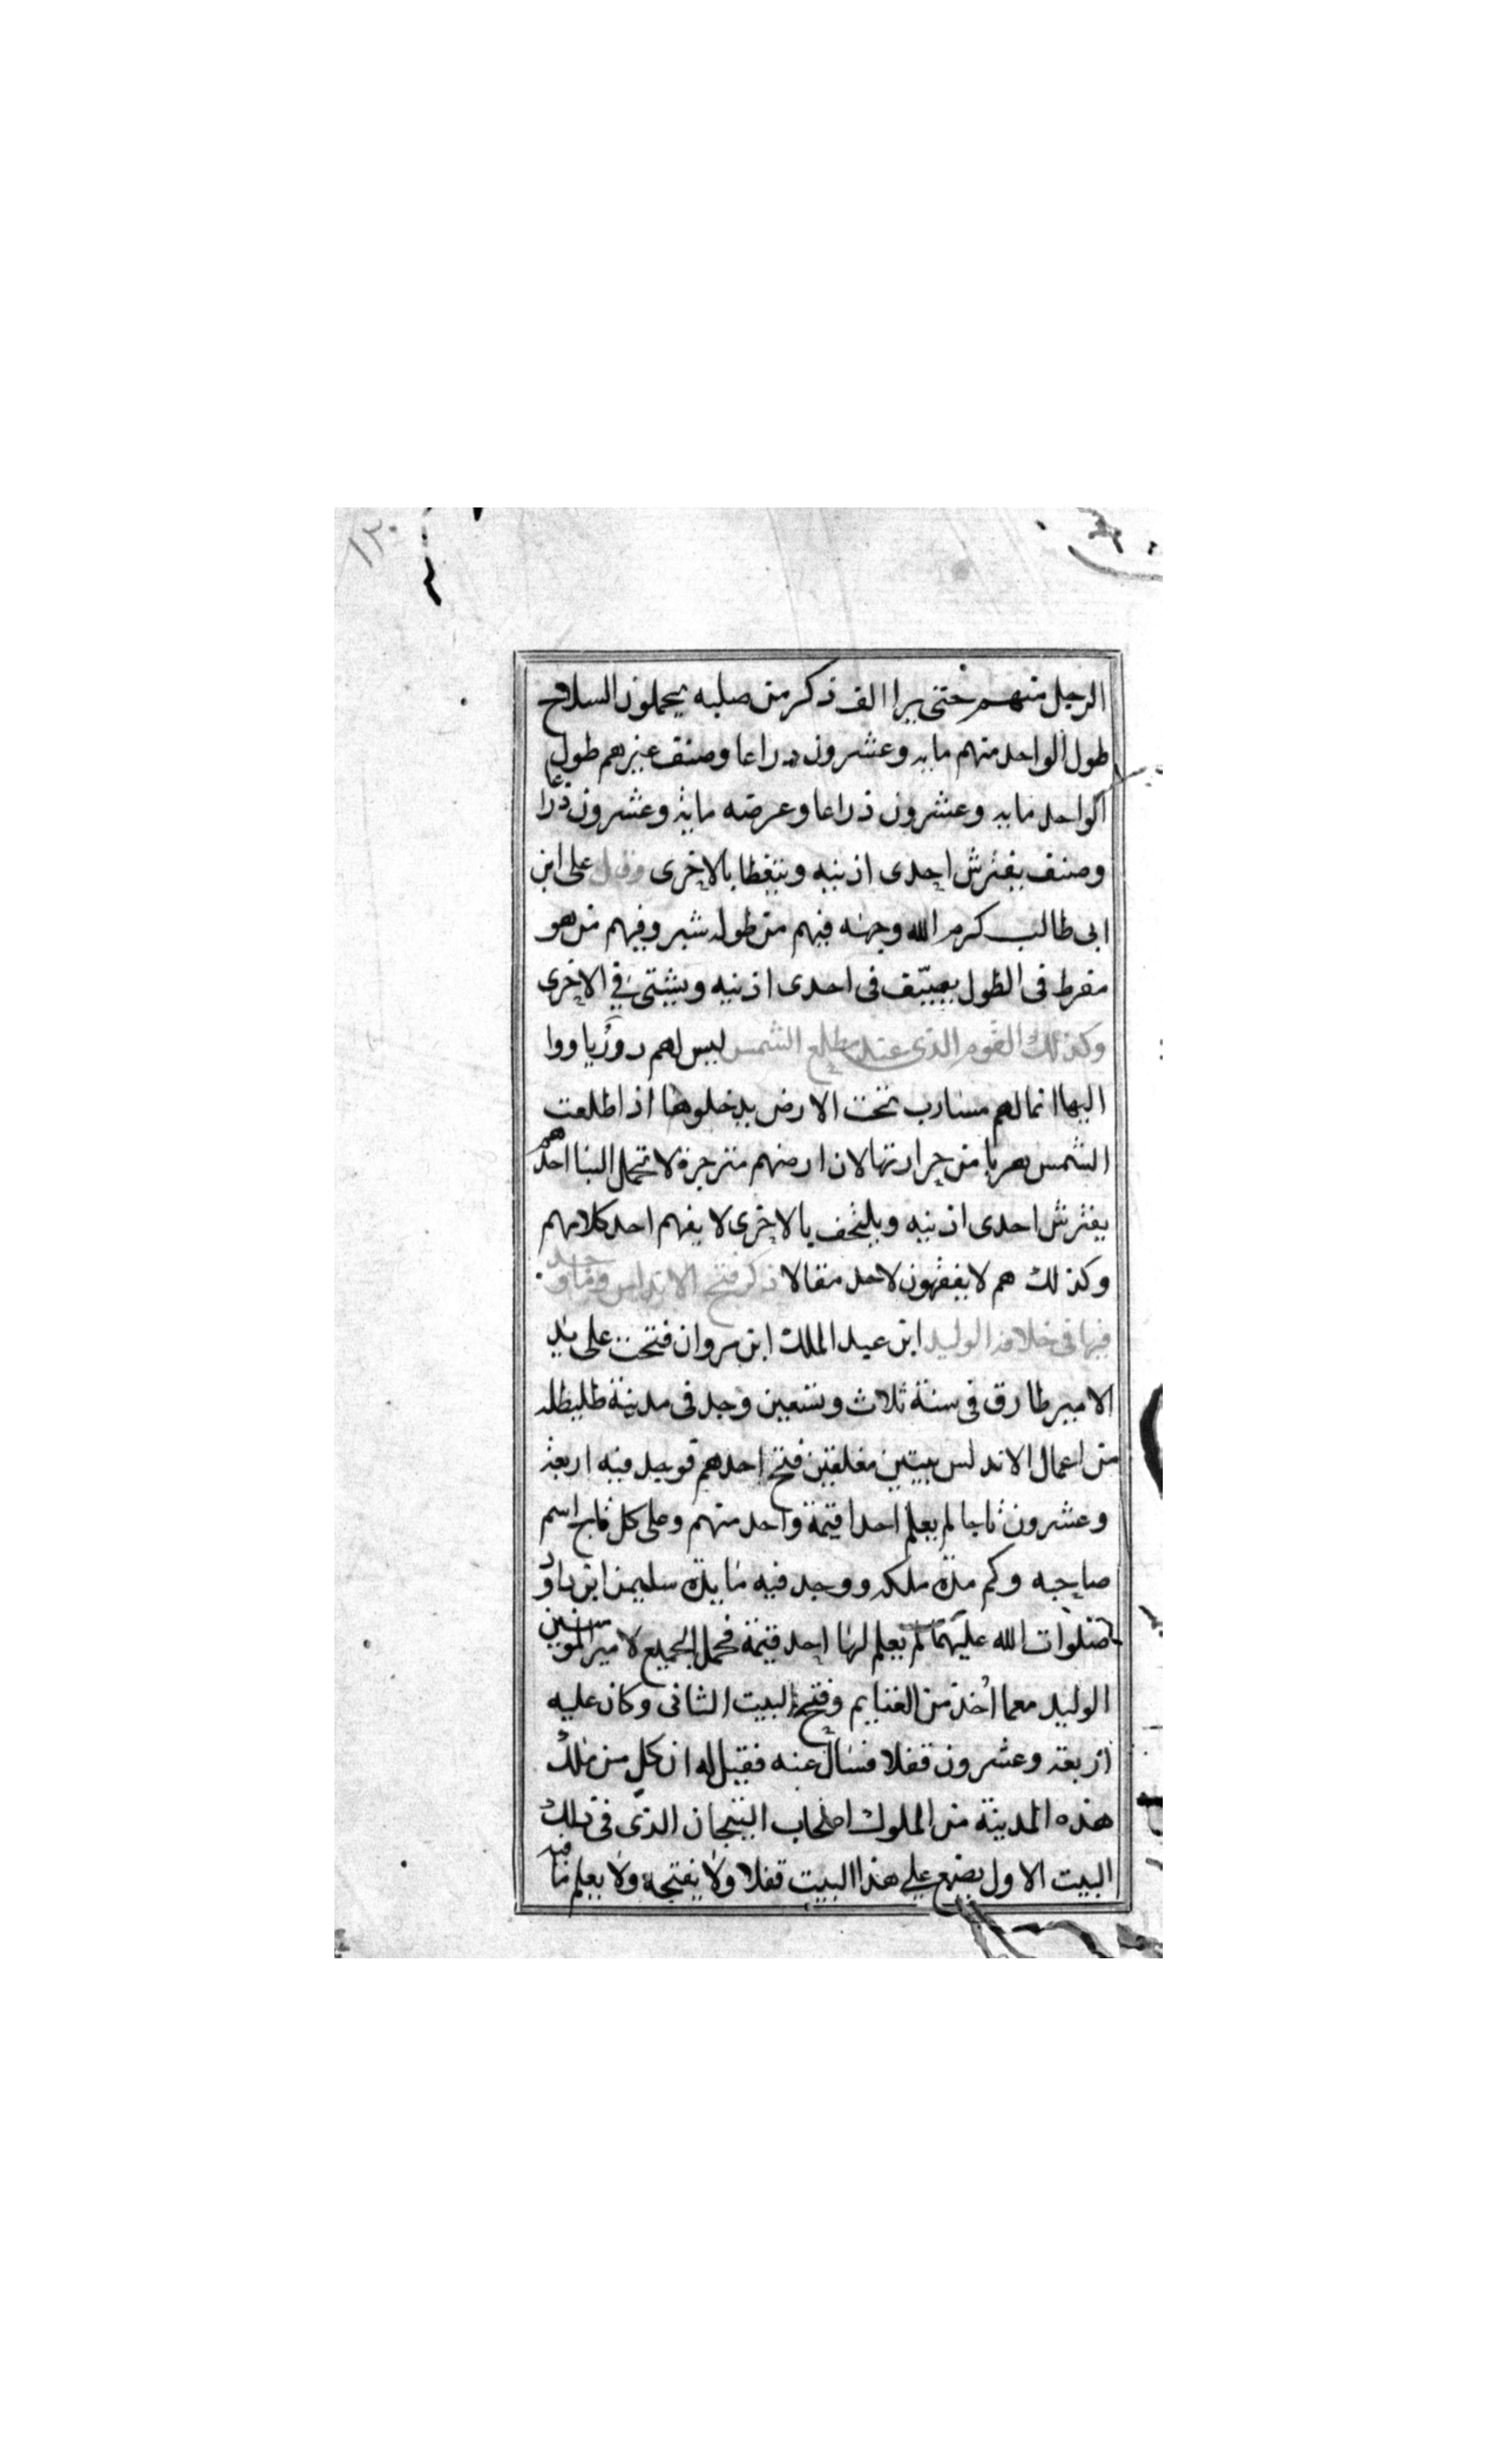 ١٣٠
الرجل منهم حتى يرا الف ذكر من صلبه يحملون السلاح
طول الواحد منهم مايه وعشرون دراعا وصنف غيرهم طول
الواحد مايه وعشرون ذراعا وعرضه ماية وعشرون ذراعا
وصنف يفترش احدى اذنيه ويتغطا بالاخرى وقال على ابن
ابى طالب كرم الله وجهه فيهم من طوله شبر وفيهم من هو
مفرط فى الطول يصيّف فى احدى اذنيه ويشتى في الاخرى
وكذلك القوم الذى عند مطلع الشمس ليس لهم دور ياووا
اليها انما لهم مسارب تحت الارض يدخلوها اذا طلعت
الشمس هربا من حرارتها لان ارضهم مترجرة لا تحمل البنا احدهم
يفترش احدى اذنيه ويلتحف بالاخرى لا يفهم احد كلامهم
وكذلك هم لا يفقهون لاحد مقالا ذكر فتح الاندلس وما وجد
فيها فى خلافة الوليد ابن عبد الملك ابن مروان فتحت على يد
الامير طارق فى سنة ثلاث وتسعين وجد فى مدينة طليطله
من اعمال الاندلس بيتين مغلقين فتح احدهم فوجد فيه اربعة
وعشرون تاجا لم يعلم احدا قيمة واحد منهم وعلى كل تاج اسم
صاحبه وكم مدة ملكه ووجد فيه مايدة سليمن ابن داود
صلوات الله عليهما لم يعلم لها احد قيمة فحمل الجميع لامير المومنين
الوليد معما اخذ من الغنايم وفتح البيت الثانى وكان عليه
اربعة وعشرون قفلا فسال عنه فقيل له ان كل من ملك
هذه المدينة من الملوك اصحاب التيجان الذى فى ذلك
البيت الاول يضع على هذا البيت قفلا ولا يفتحه ولا يعلم ما فيه